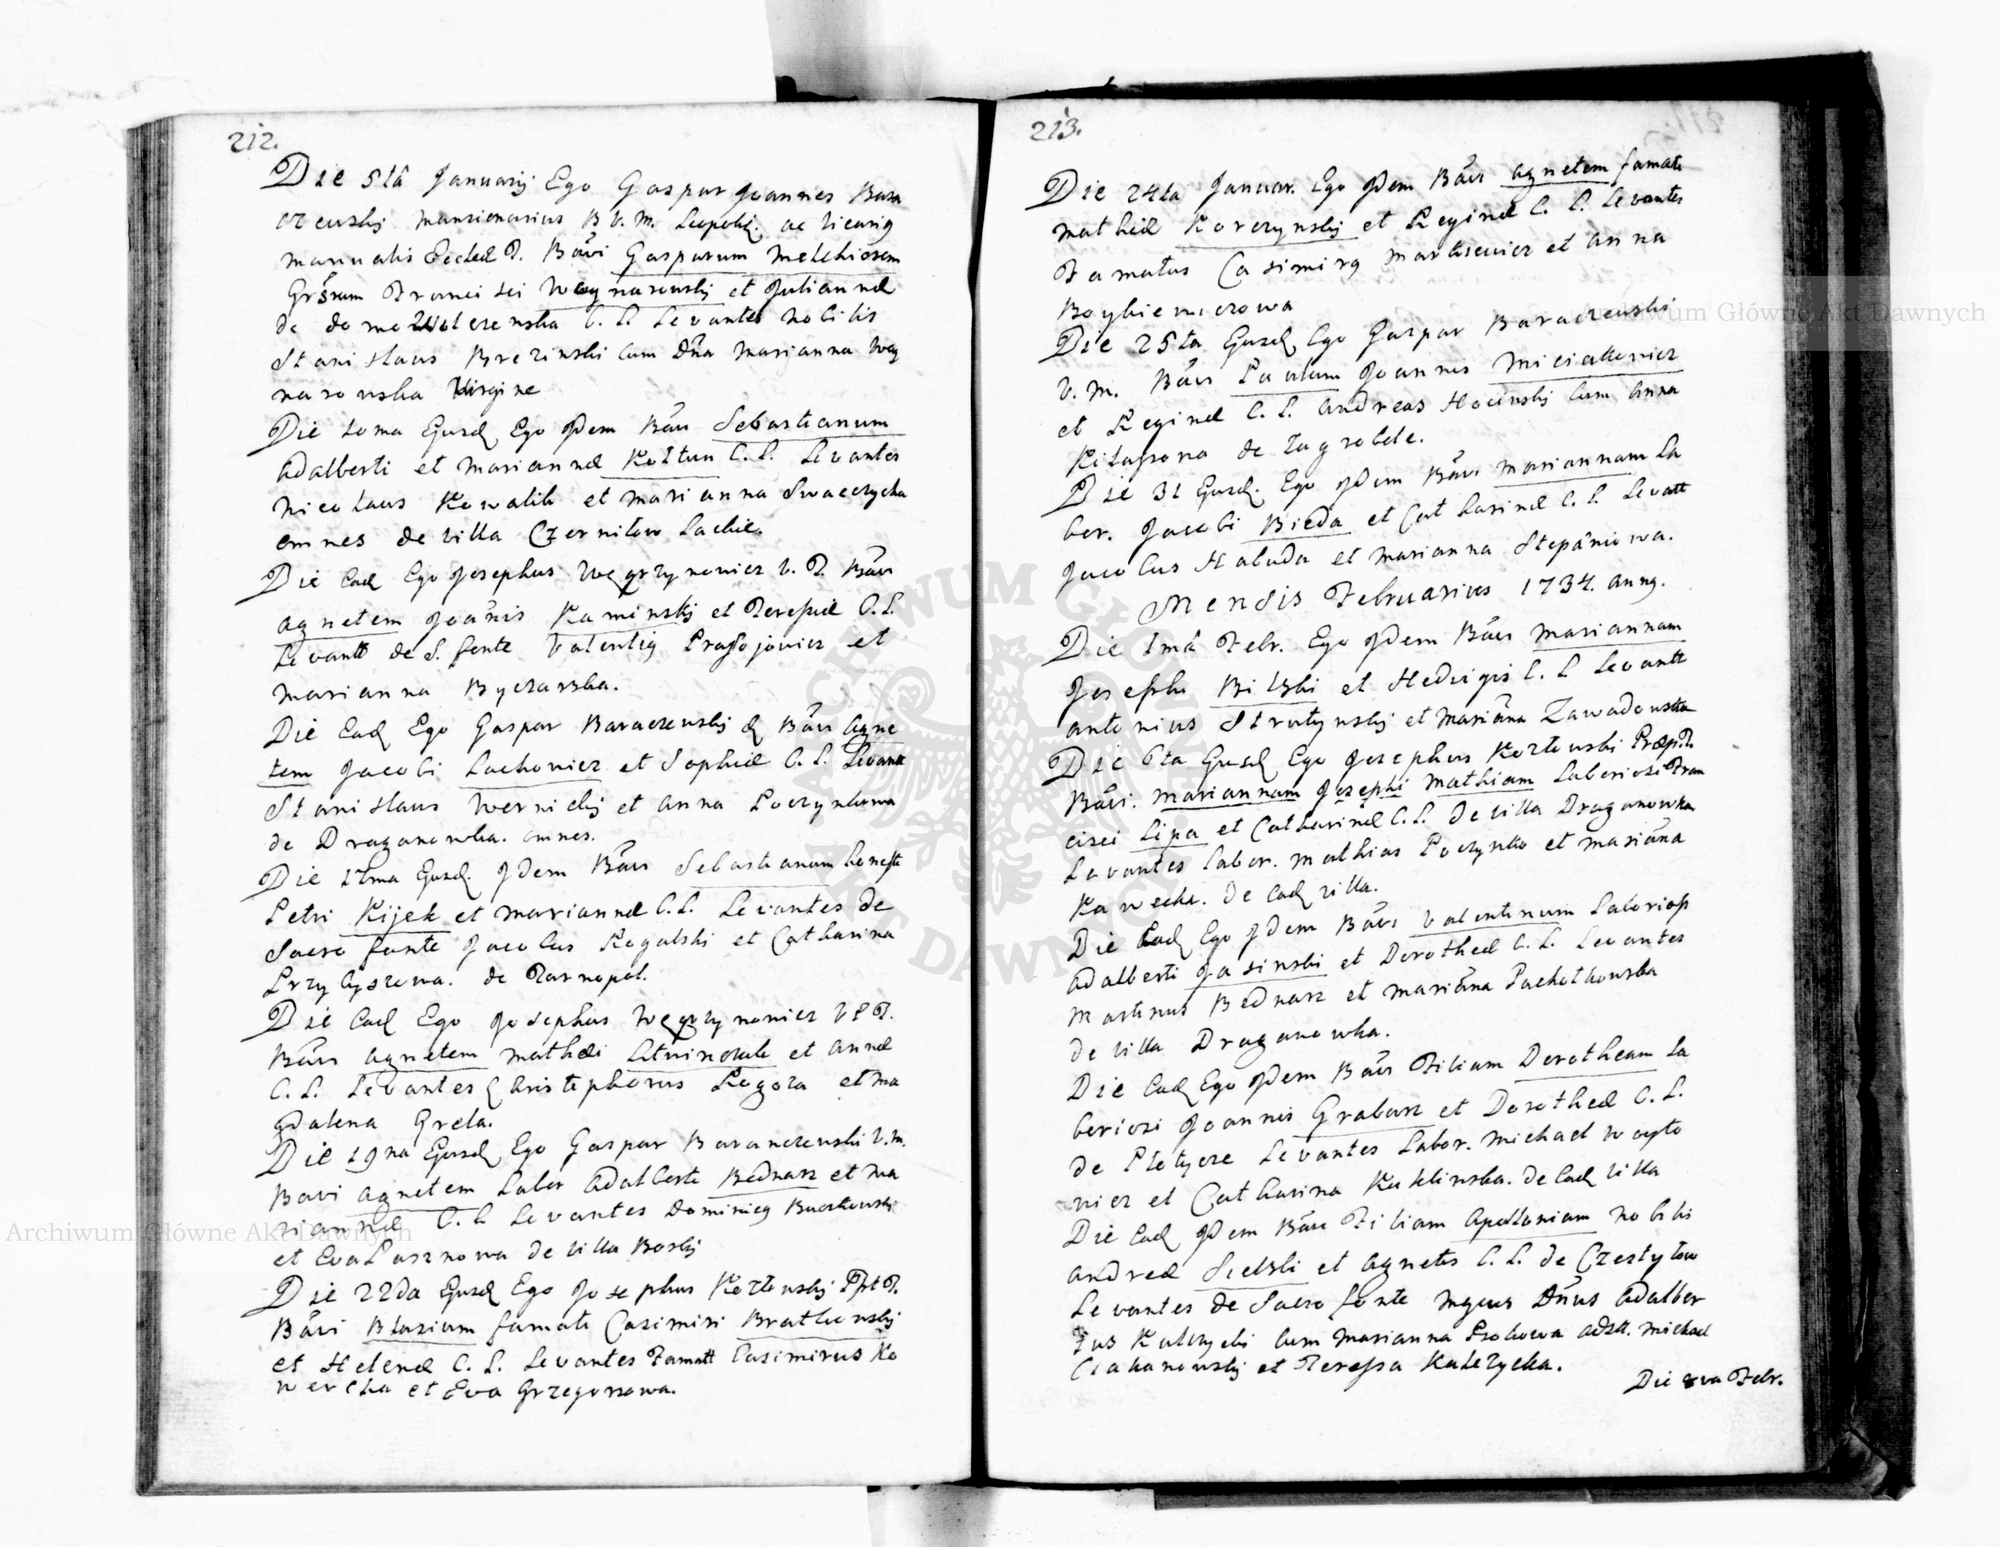 212.
Die 5ta Januarij Ego Gaspar Joannes Bara
czewskj mansionarius B V. M. Leopoli. ac vicariq
manualis Eccleæ T. Bāvi Gasparum Melchiorem
Gr̄sum Francisci Wegnarowskj et Juliannæ
de domo C. L. Levantes Nobilis
Stanislaus Brezinski cum Dn̄a Marianna Weg
narowska Virgine
Die 10ma Ejusd Ego Idem Bāvi Sebastianum
Adalberti et Mariannæ Koltun C. L. Levantes
Nicolaus Kowalik et Marianna Swaczycka
omnes de villa Czernilow Lackie.
Die Ead Ego Josephus Węgrzynowicz V. T. Bāvi
Agnetem Joānis Kaminskj et Teressiæ C. L.
Levantt de S. fonte Valentiq et
Marianna Byczarska.
Die Ead Ego Gaspar Baraczewskj Bāvi Agne
tem Jacobi Lachowicz et Sophiæ C. L. Levantt
Stanislaus Wernickj et Anna Poczynkowa
de Draganowka. omnes.
Die 17ma Ejusd. Idem Bāvi Sebastianum honesti
Petri Kijek et Mariannæ C. L. Levantes de
Sacro fonte Jacobus Rogalski et Catharina
Przybyszewa. de Tarnopol.
Die Ead Ego Josephus Węgrzynowicz V P T.
Bāvi Agnetem Mathæi Litwinczuk et Annæ
C. L. Levantes Christophorus Rogoza et Ma
gdalena Greta.
Die 19na Ejusd Ego Gaspar Baranczewski V. M.
Bavi Agnetem Labor Adalberti Bednarz et Ma
riannæ C. L Levantes Dominicq Buczkowski
et Eva Lasznowa de villa Borkj
Die 22da Ejusd Ego Josephus Kozlowskj Ppt T.
Bāvi Blasium famati Casimiri Bratkowskj
et Helenæ C. L. Levantes Famatt Casimirus Ko
wercka et Eva Grzegorzowa.
213.
Die 24ta Januar. Ego Idem Bāvi Agnetem famati
Mathiæ Korczynskj et Reginæ C. L. Levantes
Famatus Casimirq Markiewicz et Anna
Boykiewiczowa
Die 25ta Ejusd Ego Gaspar Baraczewski
V. M. Bāvi Paulum Joannis Miciakowicz
et Reginæ C. L. Andreas Hocinskj cum Anna
Kitassowa de Zagrobele.
Die 31 Ejusd. Ego Idem Bāvi Mariannam La
bor. Jacobi Bieda et Catharinæ C. L. Levantt
Jacobus Haluda et Marianna Stepaniowa.
Mensis Februarius 1734. annq.
Die 1mâ Febr. Ego Idem Bāvi Mariannam
Josephi Bilski et Hedvigis C. L Levantt
Antonius Strutynskj et Mariāna Zawadowska
Die 6ta Ejusd Ego Josephus Kozlowski Præp. T.
Bāvi. Mariannam Josephi Mathiam Laboriosi Fran
cisci Lipa et Catharinæ C. L. De villa Draganowka
Levantes Labor. Mathias Poczynko et Mariāna
Kaweche. De Ead villa.
Die Ead Ego Idem Bāvi Valentinum Laboriosi
Adalberti Jasinski et Dorotheæ C. L. Levantes
Martinus Bednarz et Mariāna Pachotkowska
de villa Draganowka.
Die Ead Ego Idem Bāvi Filiam Dorotheam La
boriosi Joannis Grabarz et Dorotheæ C. L.
de Płotycze Levantes Labor. Michael Woyto
wicz et Catharina Kuklinska. de Ead villa
Die Ead Idem Bāvi Filiam Apolloniam Nobilis
Andreæ Sielski et Agnetis C. L. de Czestylow
Levantes de Sacro fonte Mgcus Dn̄us Adalber
tus Kulczycki cum Marianna Psokowa adstt. Michael
Ciakanowskj et Teressa Kulczycka.
Die 8va Febr.